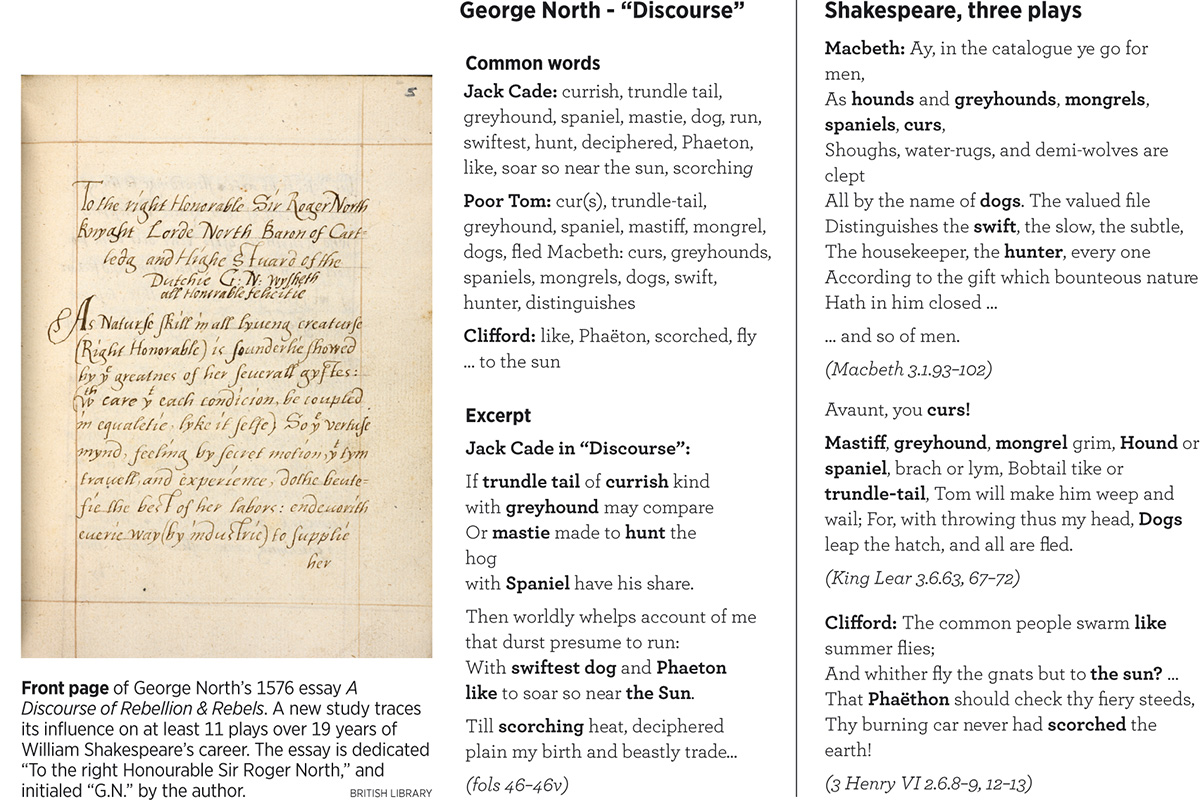 5
To the right Honorable Sir Roger North
Knyght Lorde North Baron of Cart=
ledg and Highe Stuard of the
Dutchie G: N: wysheth
all Honorable felicitie
As Naturse skill in all lyueng creaturse
(Right Honorable) is sounderlie showed
by yᵉ greatnes of her seuerall gyftes:
(wᵗʰ care yᵗ each condicion, be coupled
in equaletie, lyke it selfe) So yᵉ vertuse
mynd, feeling by secret motion, yᵗ tym
trauell, and experience, dothe beute=
fie the best of her labors: endeuorith
euerie way (by industrie) to supplie
her
Front page of George North's 1576 essay A
Discourse of Rebellion & Rebels. A new study traces
its influence on at least 11 plays over 19 years of
William Shakespeare's career. The essay is dedicated
“To the right Honourable Sir Roger North,” and
initialed “G.N.” by the author.
BRITISH LIBRARY
George North - “Discourse”
Common words
Jack Cade: currish, trundle tail,
greyhound, spaniel, mastie, dog, run,
swiftest, hunt, deciphered, Phaeton,
like, soar so near the sun, scorching
Poor Tom: cur(s), trundle-tail,
greyhound, spaniel, mastiff, mongrel,
dogs, fled Macbeth: curs, greyhounds,
spaniels, mongrels, dogs, swift,
hunter, distinguishes
Clifford: like, Phaëton, scorched, fly
... to the sun
Excerpt
Jack Cade in “Discourse”:
If trundle tail of currish kind
with greyhound may compare
Or mastie made to hunt the
hog
with Spaniel have his share.
Then worldly whelps account of me
that durst presume to run:
With swiftest dog and Phaeton
like to soar so near the Sun.
Till scorching heat, deciphered
plain my birth and beastly trade...
(fols 46–46v)
Shakespeare, three plays
Macbeth: Ay, in the catalogue ye go for
men,
As hounds and greyhounds, mongrels,
spaniels, curs,
Shoughs, water-rugs, and demi-wolves are
clept
All by the name of dogs. The valued file
Distinguishes the swift, the slow, the subtle,
The housekeeper, the hunter, every one
According to the gift which bounteous nature
Hath in him closed ...
... and so of men.
(Macbeth 3.1.93–102)
Avaunt, you curs!
Mastiff, greyhound, mongrel grim, Hound or
spaniel, brach or lym, Bobtail tike or
trundle-tail, Tom will make him weep and
wail; For, with throwing thus my head, Dogs
leap the hatch, and all are fled.
(King Lear 3.6.63, 67–72)
Clifford: The common people swarm like
summer flies;
And whither fly the gnats but to the sun? ...
That Phaëthon should check thy fiery steeds,
Thy burning car never had scorched the
earth!
(3 Henry VI 2.6.8–9, 12–13)